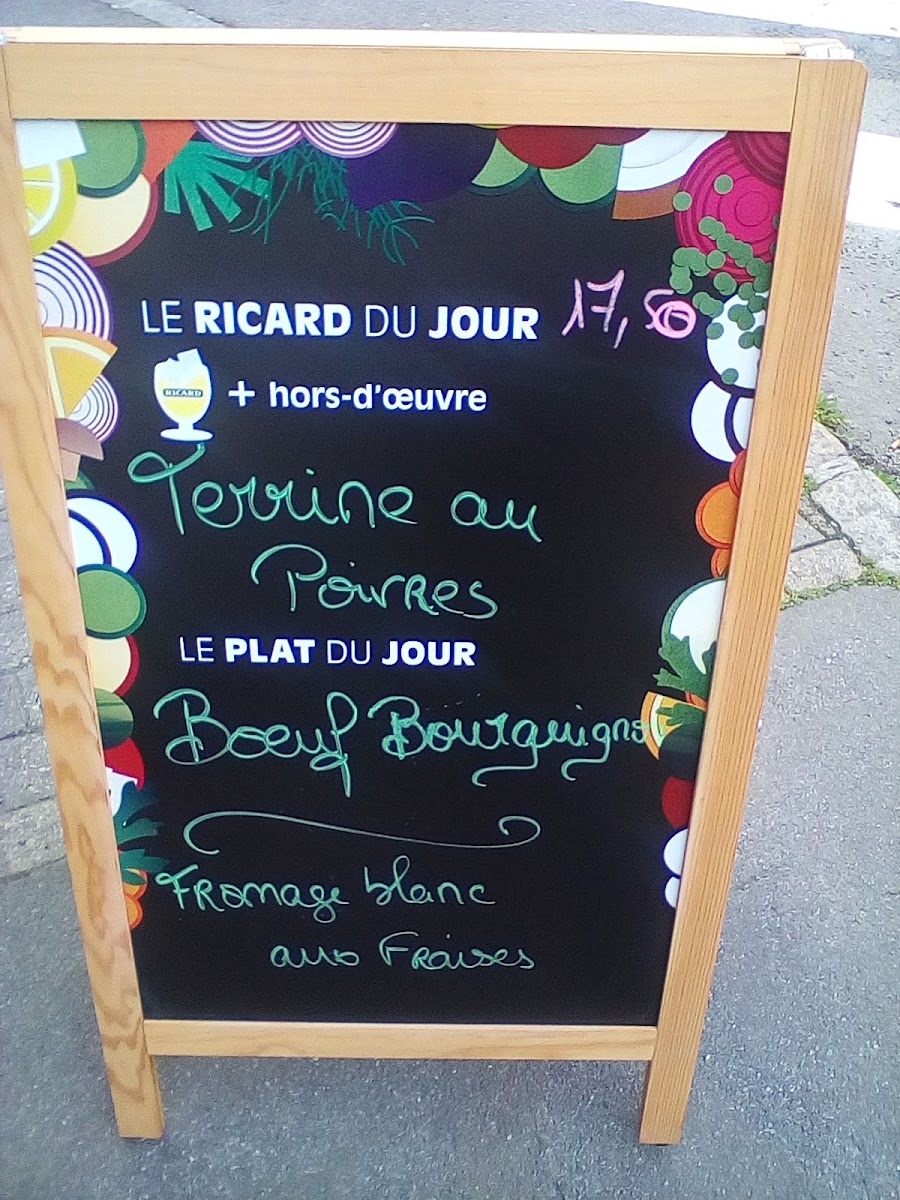 LE RICARD DU JOUR 17,50
RICARD
+ hors-d'œuvre
Terrine au
Poivres
LE PLAT DU JOUR
Boeuf Bourguigno
Fromage blanc
aux Fraises